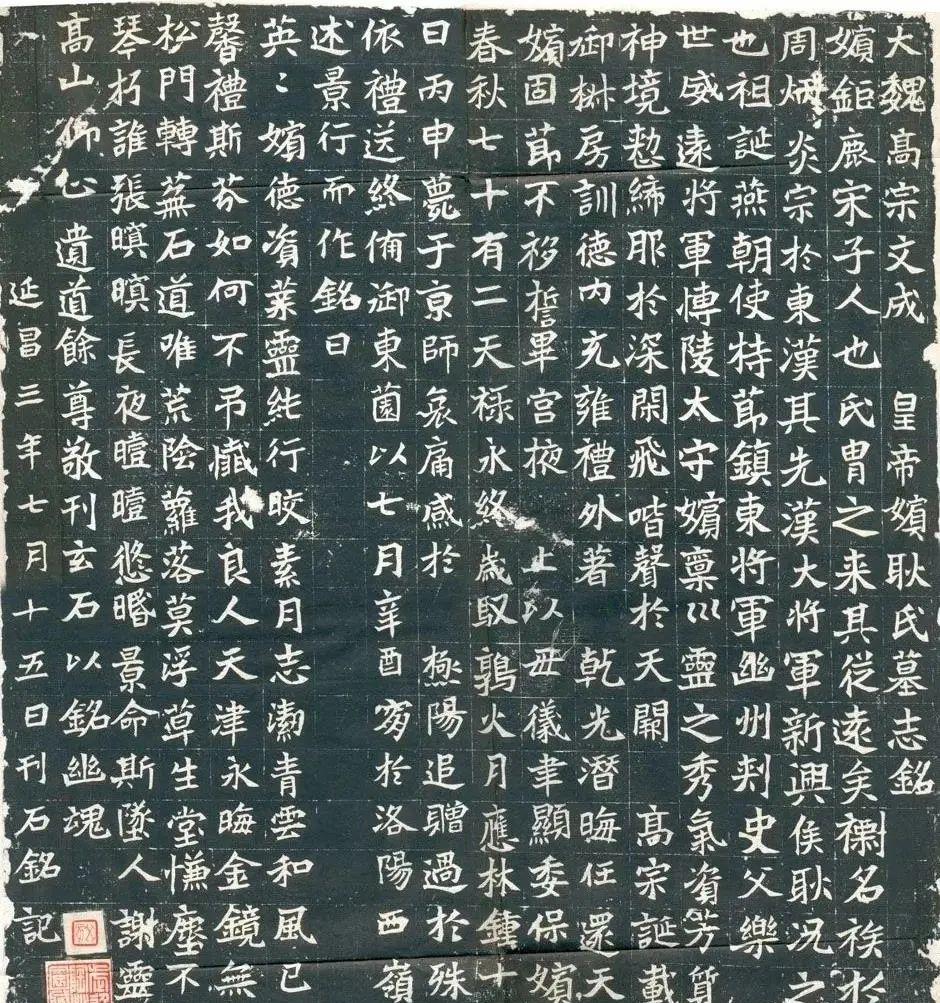 大魏髙宗文成 皇帝嬪耿氏墓志銘
嬪鉅鹿宋子人也氏胄之来其從遠矣名族於
周炎宗於東漢其先漢大將軍新興侯耿况之
也祖誕燕朝使持莭鎮東將軍幽州刾史父樂
世威遠將軍博陵太守嬪稟巛靈之秀氣資芳質
神境締服於深閑飛喈聲於天闈 髙宗誕載
御樹房訓德内充雍禮外著乾光潛晦任還天
嬪固莭不移誓畢宫掖 上以毌儀聿顯委保嬪
春秋七十有二天禄永終歳馭鶉火月應林鍾十
日丙申薨于亰師哀痛感於 陽追贈過於殊
依禮送終俻御東園以七月辛酉窆於洛陽西嶺
述景行而作銘曰
英〻嬪德資葉靈純行皎素月志青雲和風已
馨禮斯芬如何不吊殲我良人天津永晦金鏡無
松門轉蕪石道唯荒陰蘿落莫浮草生堂慊塵不
琴朽誰張暝暝長夜曀曀悠昬 景命斯墜人謝靈
髙山仰止遺道餘尊敬刊玄石以銘幽魂
延昌三年七月十五日刊石銘記